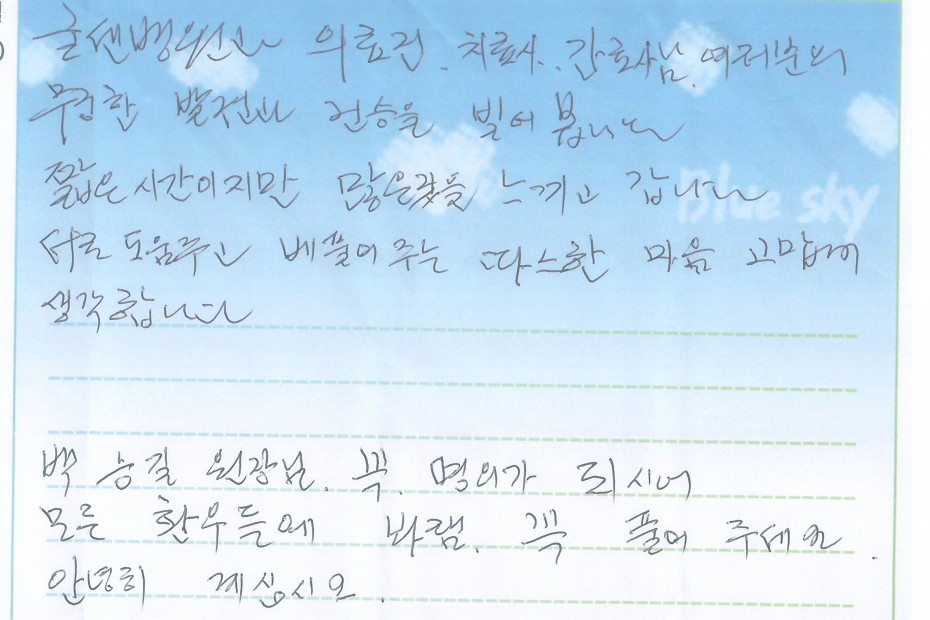 굳센병원과 의료진. 치료사. 간호사님. 여러분의
무궁한 발전과 건승을 빌어 봅니다
짧은 시간이지만 많은것을 느끼고 갑니다
Blue sky
서로 도움주고 베풀어 주는 따스한 마음 고맙게
생각합니다
백승길 원장님. 꼭. 명의가 되시어
모든 환우들에 바램. 꼭 풀어 주세요.
안녕히 계십시오.